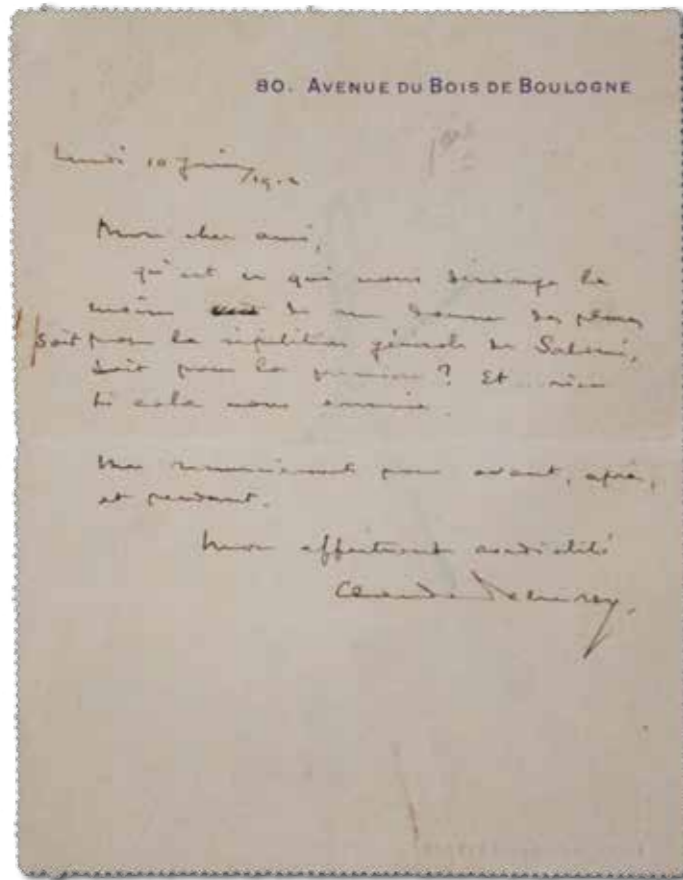 80. AVENUE DU BOIS DE BOULOGNE
Lundi 10 Juin /1912
Mon cher ami,
qu'est ce qui vous dérange le
moins de me donner des places
soit pour la répétition générale de Salomé,
soit pour la première ? Et rien
si cela vous ennuie.
Mes remerciements pour avant, après,
et pendant.
Mon affectueuse cordialité
Claude Debussy.